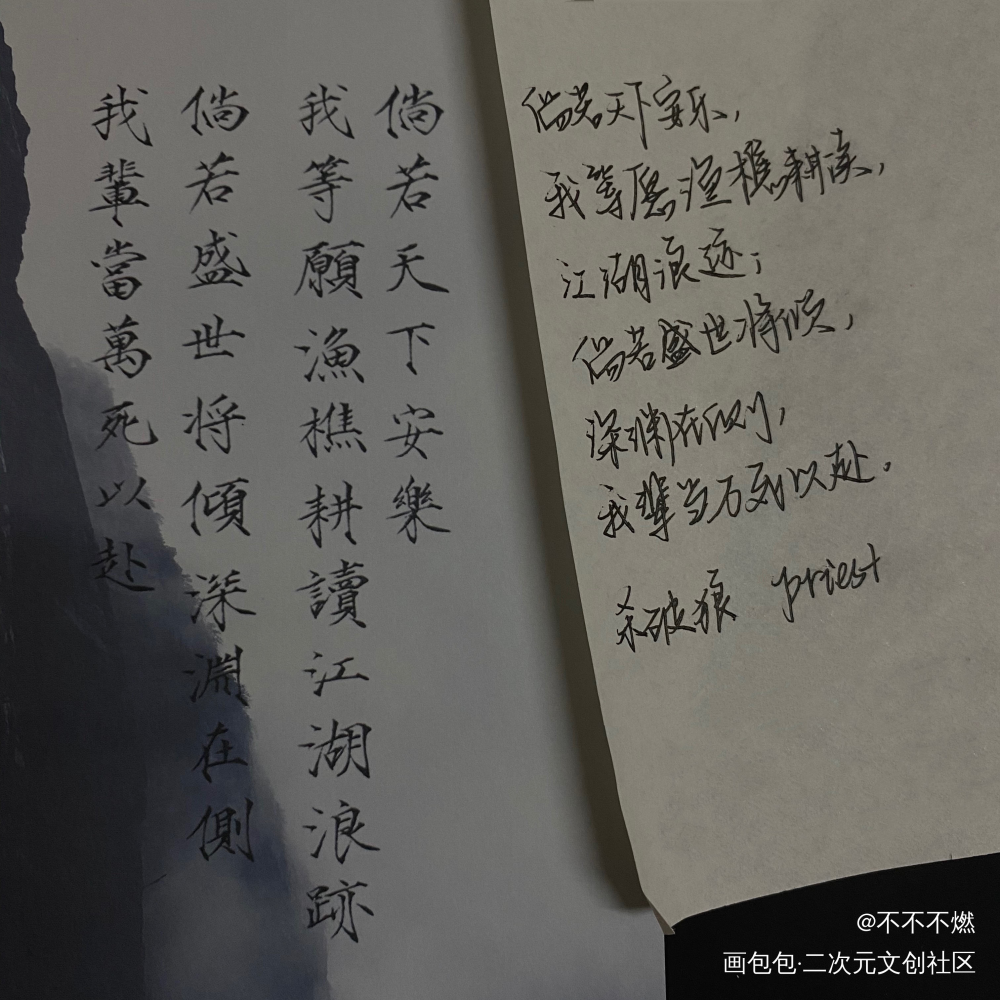 倘若天下安樂
我等願漁樵耕讀江湖浪跡
倘若盛世将傾深淵在側
我輩當萬死以赴
倘若天下安乐，
我等愿渔樵耕读，
江湖浪迹；
倘若盛世将倾，
深渊在侧，
我辈当万死以赴。
杀破狼 priest
@不不不燃
画包包·二次元文创社区